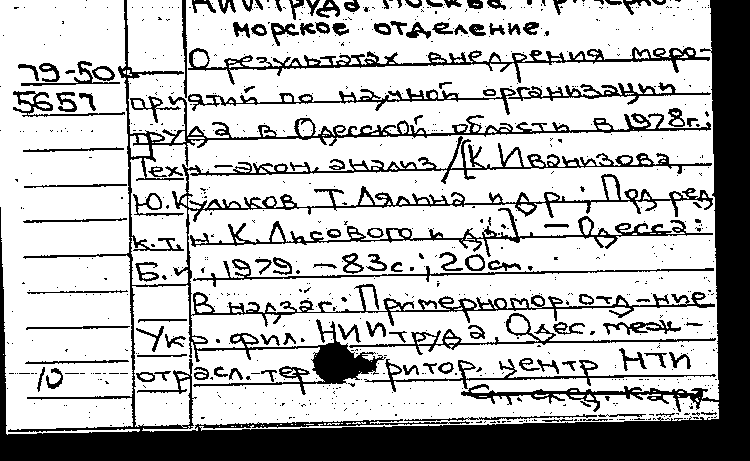 НИИ труда. Москва Причерно-
морское отделение.
О результатах внедрения меро-
79-50к
5657 приятий по научной организации
труда в Одесской области в 1978г.:
Техн.-экон. анализ /[К. Иванизова,
Ю. Куликов, Т. Лялина и др.; Под ред.
к.т.н. К. Лисового и др.]. – Одесса:
Б.и., 1979. – 83с.; 20см.
В надзаг.: Причерномор. отд-ние
Укр. фил. НИИ труда, Одес. меж-
10 отрасл. территор. центр НТИ
См. след. карт